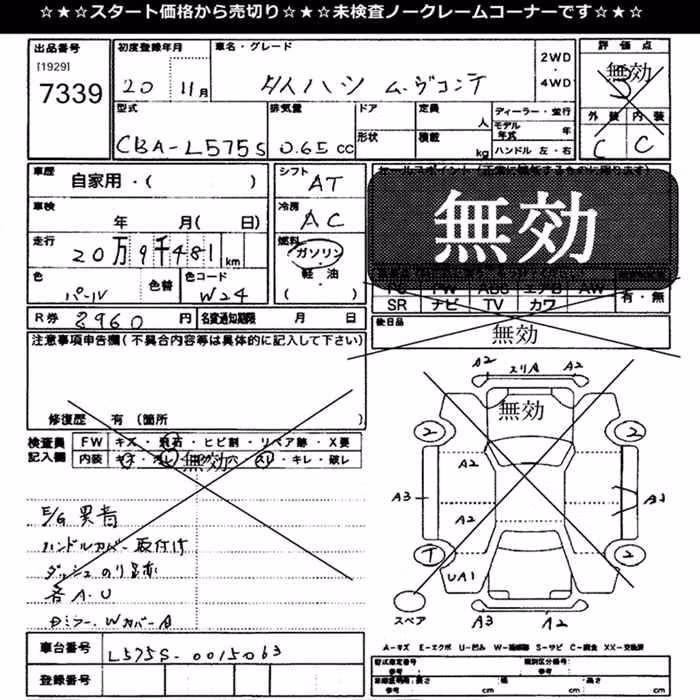 ☆★☆★スタート価格から売切り☆★☆★未検査ノークレームコーナーです☆★☆
出品番号 初度登録年月 車名・グレード 2WD ・ 4WD 評価点
[1929]
7339 20 11月 タントハシ ム-ヴコンテ 無効
外装 内装
C C
型式 排気量 ドア 定員 人 ディーラー・並行
CBA-L575S 0.65cc 形状 積載 kg モデル年式 年
ハンドル 左・右
車歴 自家用・( ) シフト AT
車検 年 月( 日) 冷房 AC
無効
走行 20万9千481km 燃料 ガソリン
軽・油
( )
色 パール 色替 色コード W24
SR ナビ TV カワ 有・無
R券 8960円 名変通知期限 月 日 後日品
無効
注意事項申告欄(不具合内容等は具体的に記入して下さい)
修復歴 有 (箇所 )
検査員記入欄 FW キズ・飛石・ヒビ割・リペア跡・X要
内装 キズ・ スレ・キレ・破レ
無効
E/G異音
ハンドルカバー取付け
ダッシュのり
各A.U
A2 A2
無効
2 2
A2
A3
A2
2
UA1
スペア
A3 A2
車台番号 L575S-0015063
登録番号
A-キズ E-エクボ U-凹み S-サビ C-腐食 XX-交換済